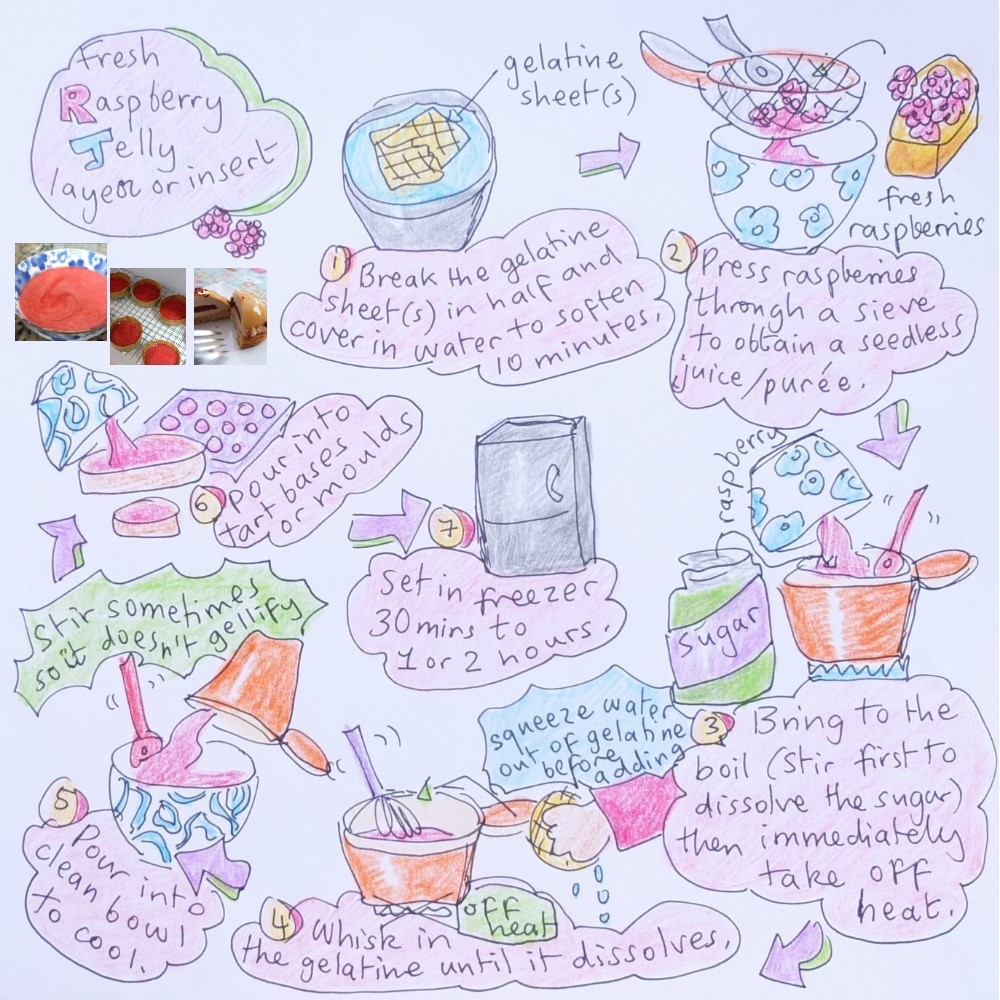 Fresh
Raspberry
Jelly
layer or insert
gelatine
sheet(s)
fresh
raspberries
1 Break the gelatine
sheet(s) in half and
cover in water to soften
10 minutes.
2 Press raspberries
through a sieve
to obtain a seedless
juice/purée.
raspberry
sugar
3 Bring to the
boil (stir first to
dissolve the sugar)
then immediately
take off
heat.
squeeze water
out of gelatine
before
adding
off
heat
4 Whisk in
the gelatine until it dissolves.
5 Pour into
clean bowl
to
cool.
Stir sometimes
so it doesn't gellify
6 pour into
tart bases
or moulds
7
Set in freezer
30 mins to
1 or 2 hours.